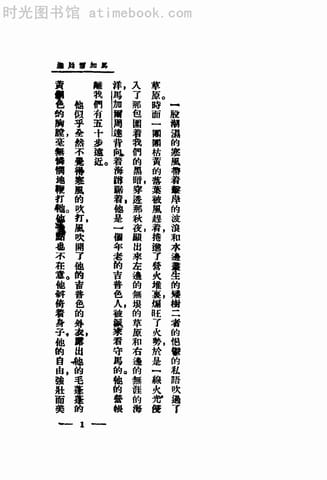 时光图书馆
www.atimebook.com
馬加爾周達
一股潮濕的寒風帶着擊岸的波浪和水邊叢生的矮樹二者的悒鬱的私語吹過了
草原。時而一團團枯黃的落葉被風趕着，捲進了營火堆裏，煽旺了火勢；於是一線火光侵
入了那包圍着我們的黑暗，穿透那秋夜，顯出來左邊的無垠的草原和右邊的無涯的海
洋，馬加爾周達背向着海蹲踞着。他是一個年老的吉普色人，被 來看守馬的。他的營帳
離我們有五十步遠近。
他似乎全然不覺得寒風的吹打，風吹開了他的吉普色的外衣，露出他的毛蓬蓬的
黃銅色的胸膛，毫無憐憫地鞭打他。他 也不在意。他斜倚着身子，他的自由，強壯而美
— 1 —